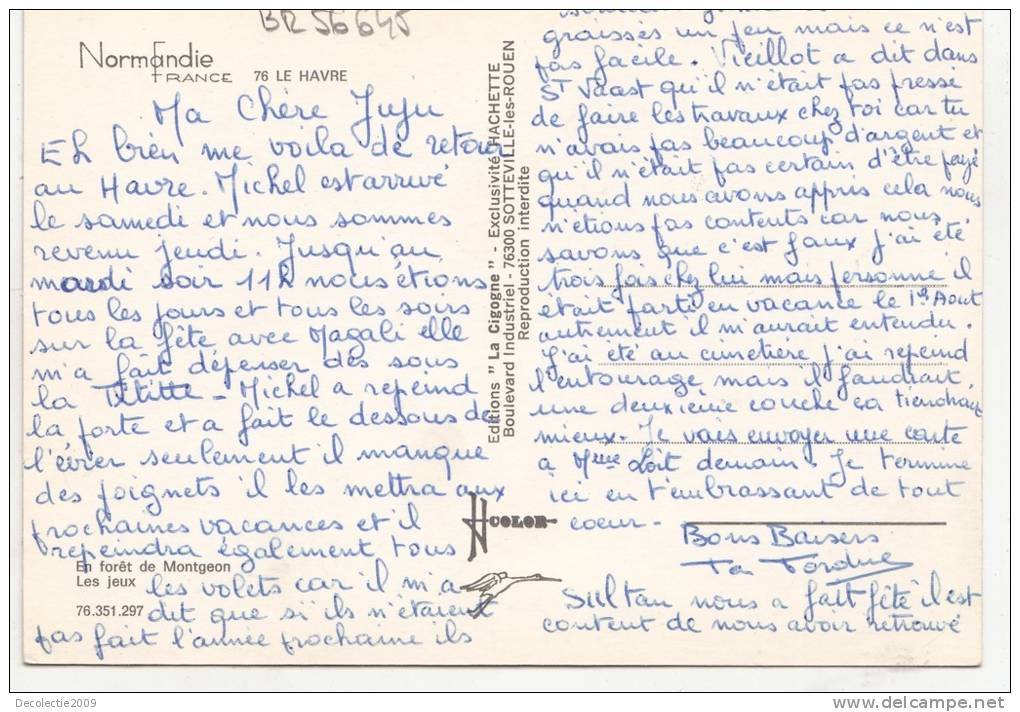 BR 56645
Normandie
FRANCE 76 LE HAVRE
Ma Chère Juju
Eh bien me voila de retour
au Havre. Michel est arrivé
le samedi et nous sommes
revenu jeudi. Jusqu'au
mardi soir 11h nous étions
tous les jours et tous les soirs
sur la fête avec Magali elle
m'a fait dépenser des sous
la Titite - Michel a repeind
la porte et a fait le dessous de
l'évier seulement il manque
des poignets il les mettra aux
prochaines vacances et il
repeindra également tous
En forêt de Montgeon
Les jeux
les volets car il m'a
76.351.297
dit que si ils n'étaient
pas fait l'année prochaine ils
Editions " La Cigogne " - Exclusivité HACHETTE
Boulevard Industriel - 76300 SOTTEVILLE-les-ROUEN
Reproduction interdite
COLOR
graissés un peu mais ce n'est
pas facile. Vieillot a dit dans
St Vaast qu'il n'était pas pressé
de faire les travaux chez toi car tu
n'avais pas beaucoup d'argent et
qu'il n'était pas certain d'être payé
quand nous avons appris cela nous
n'étions pas contents car nous
savons que c'est faux j'ai été
trois fois chez lui mais personne il
était parti en vacance le 1er Aout
autrement il m'aurait entendu.
J'ai été au cimetière j'ai repeind
l'entourage mais il faudrait
une deuxième couche ça tiendrait
mieux. Je vais envoyer une carte
à Mme Loit demain. Je termine
ici en t'embrassant de tout
coeur -
Bons Baisers
Ta Tordue
Sultan nous a fait fête il est
content de nous avoir retrouvé
Decolectie2009
www.delcampe.net